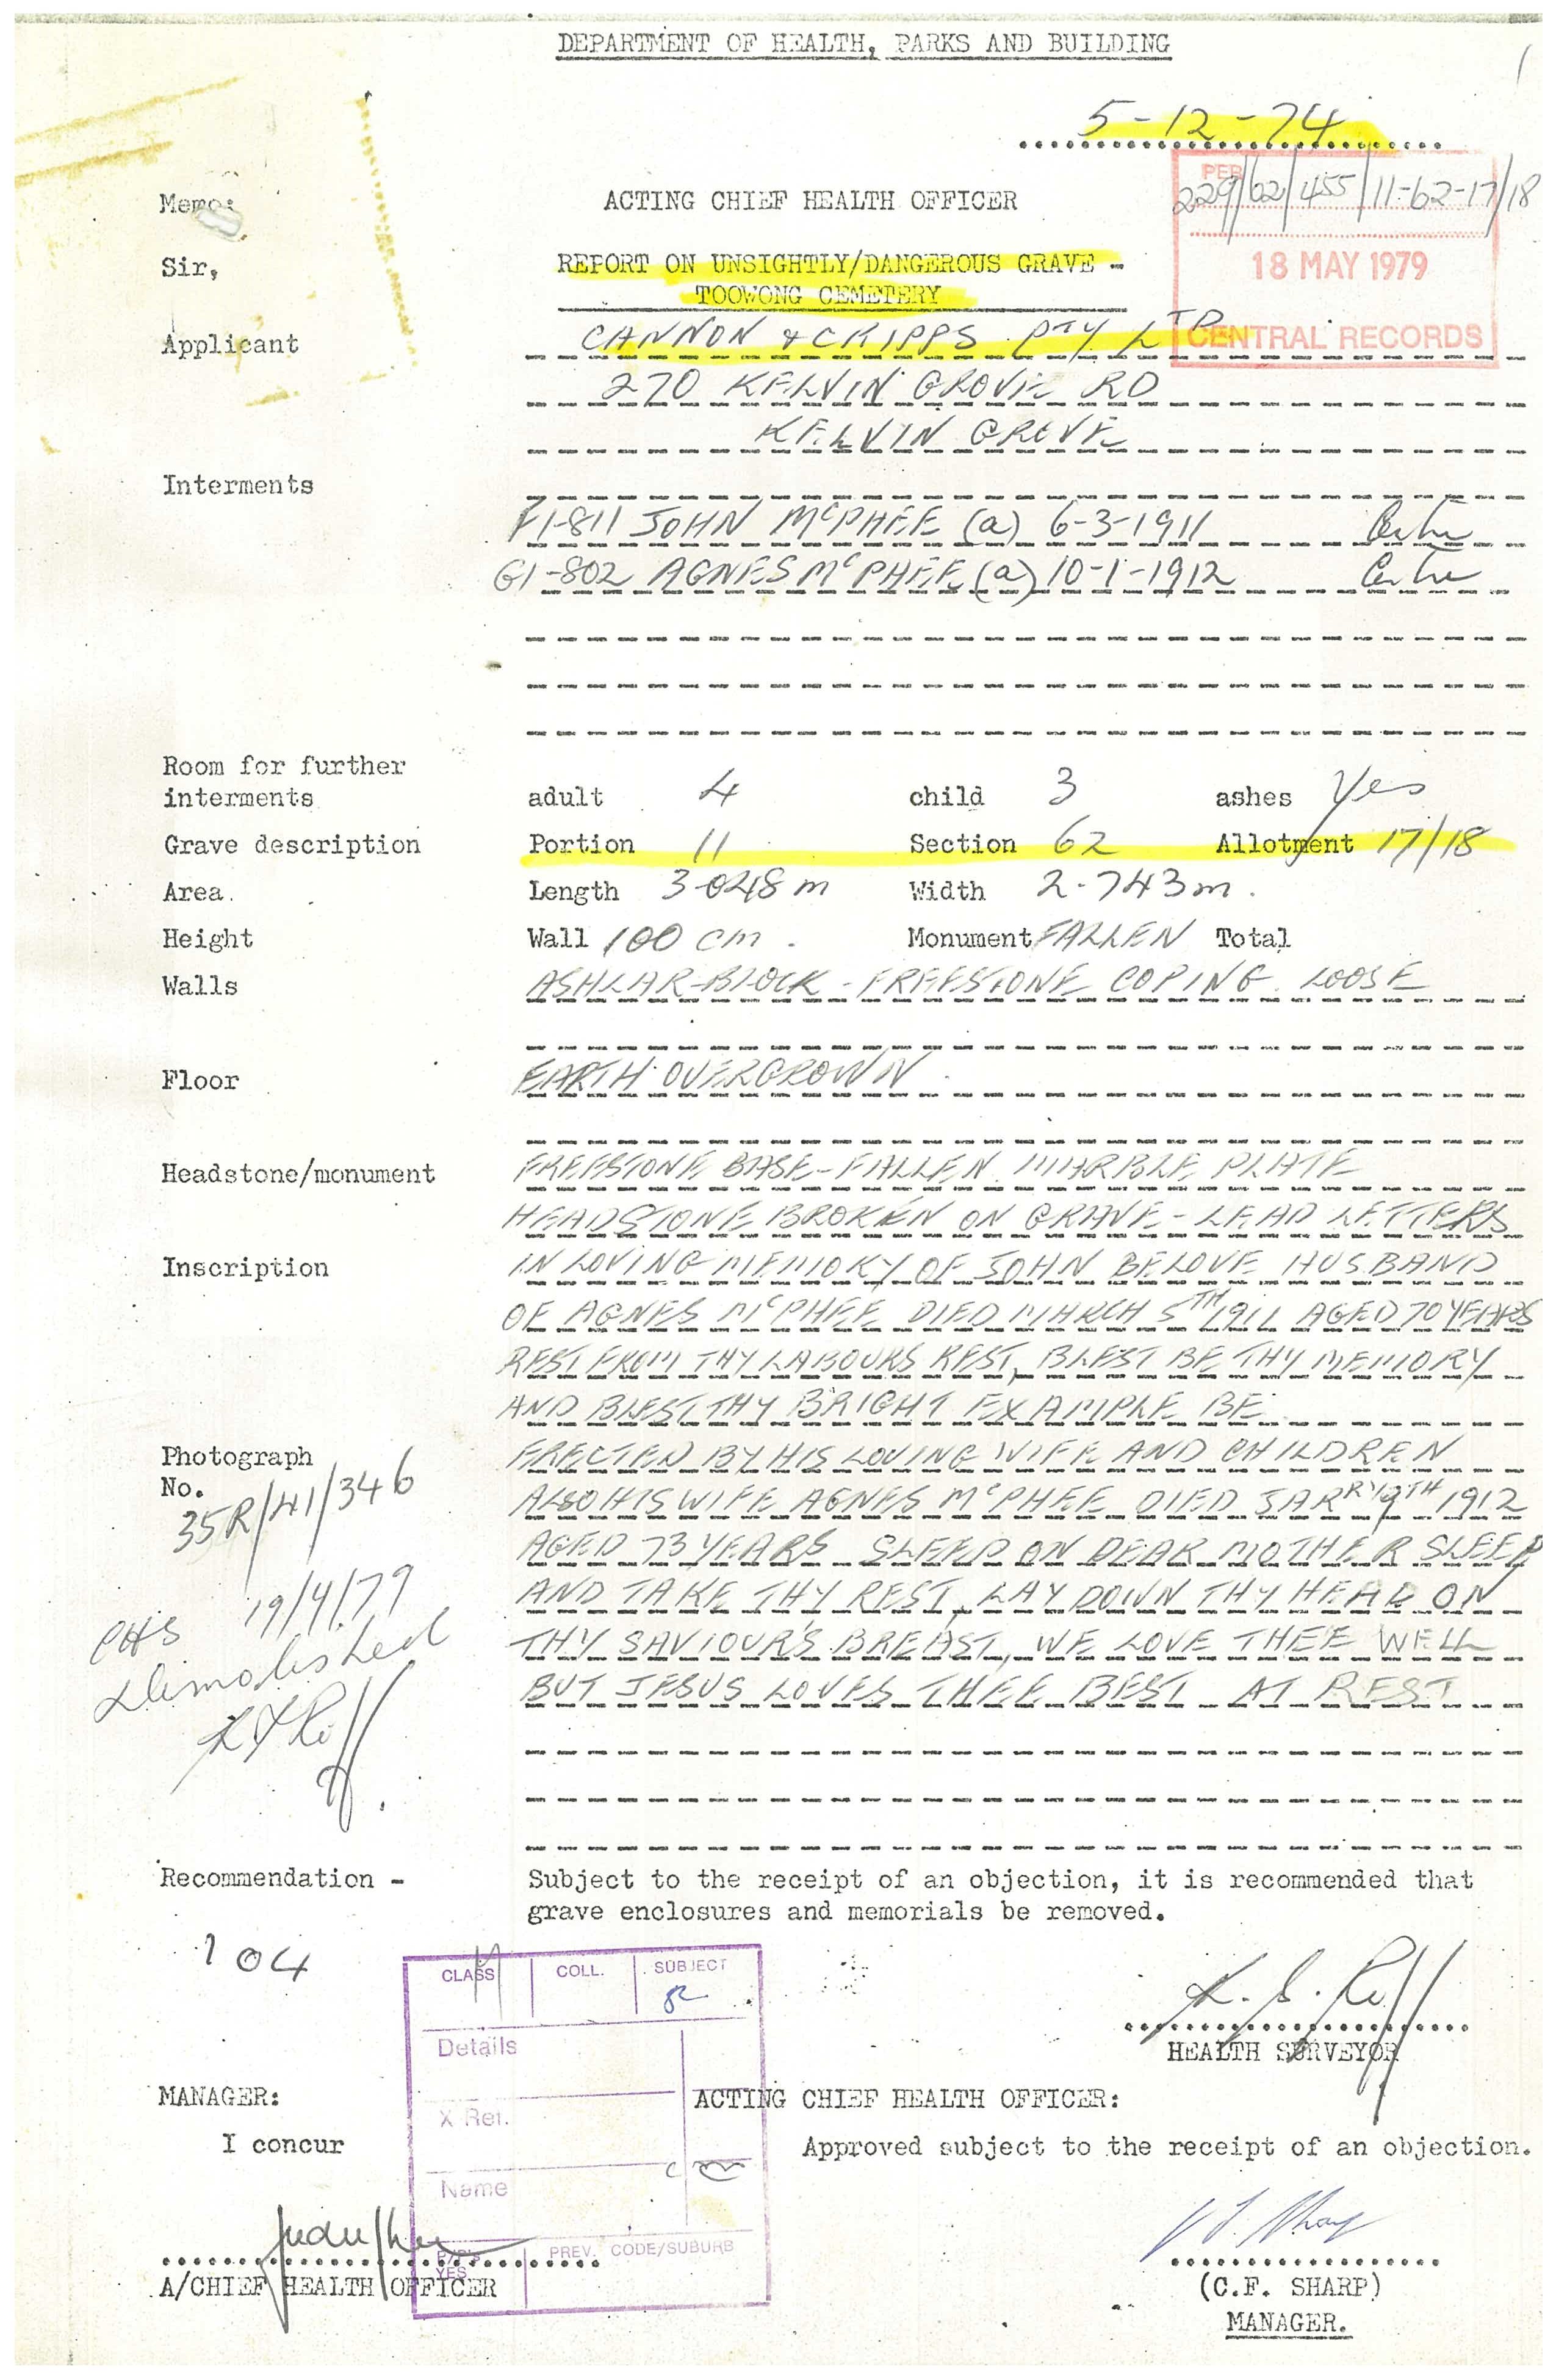 DEPARTMENT OF HEALTH, PARKS AND BUILDING
5-12-74
PER
229/62/455/11-62-17/18
18 MAY 1979
CENTRAL RECORDS
Memo: ACTING CHIEF HEALTH OFFICER
Sir, REPORT ON UNSIGHTLY/DANGEROUS GRAVE -
TOOWONG CEMETERY
Applicant CANNON & CRIPPS PTY LTD
270 KELVIN GROVE RD
KELVIN GROVE
Interments
F1-811 JOHN McPHEE (a) 6-3-1911 Centre
G1-802 AGNES McPHEE (a) 10-1-1912 Centre
Room for further
interments adult 4 child 3 ashes Yes
Grave description Portion 11 Section 62 Allotment 17/18
Area. Length 3.048 m Width 2.743 m.
Height Wall 100 cm. Monument FALLEN Total
Walls ASHLAR-BLOCK - FREESTONE COPING. LOOSE
Floor EARTH OVERGROWN.
Headstone/monument FREESTONE BASE - FALLEN. MARBLE PLATE
HEADSTONE BROKEN ON GRAVE - LEAD LETTERS
Inscription IN LOVING MEMORY OF JOHN BELOVE HUSBAND
OF AGNES McPHEE DIED MARCH 5TH 1911 AGED 70 YEARS
REST FROM THY LABOURS REST, BLEST BE THY MEMORY
AND BLEST THY BRIGHT EXAMPLE BE
Photograph ERECTED BY HIS LOVING WIFE AND CHILDREN
No. 35R/41/346
ALSO HIS WIFE AGNES McPHEE DIED JARRY 9TH 1912
AGED 73 YEARS SLEEP ON DEAR MOTHER SLEEP
AND TAKE THY REST, LAY DOWN THY HEAD ON
THY SAVIOUR'S BREAST, WE LOVE THEE WELL
BUT JESUS LOVES THEE BEST AT REST
19/4/79
Demolished
Recommendation - Subject to the receipt of an objection, it is recommended that
grave enclosures and memorials be removed.
104
CLASS COLL. SUBJECT
Details
X Ref.
Name
PREV. CODE/SUBURB
YES
HEALTH SURVEYOR
MANAGER: ACTING CHIEF HEALTH OFFICER:
I concur Approved subject to the receipt of an objection.
A/CHIEF HEALTH OFFICER (C.F. SHARP)
MANAGER.